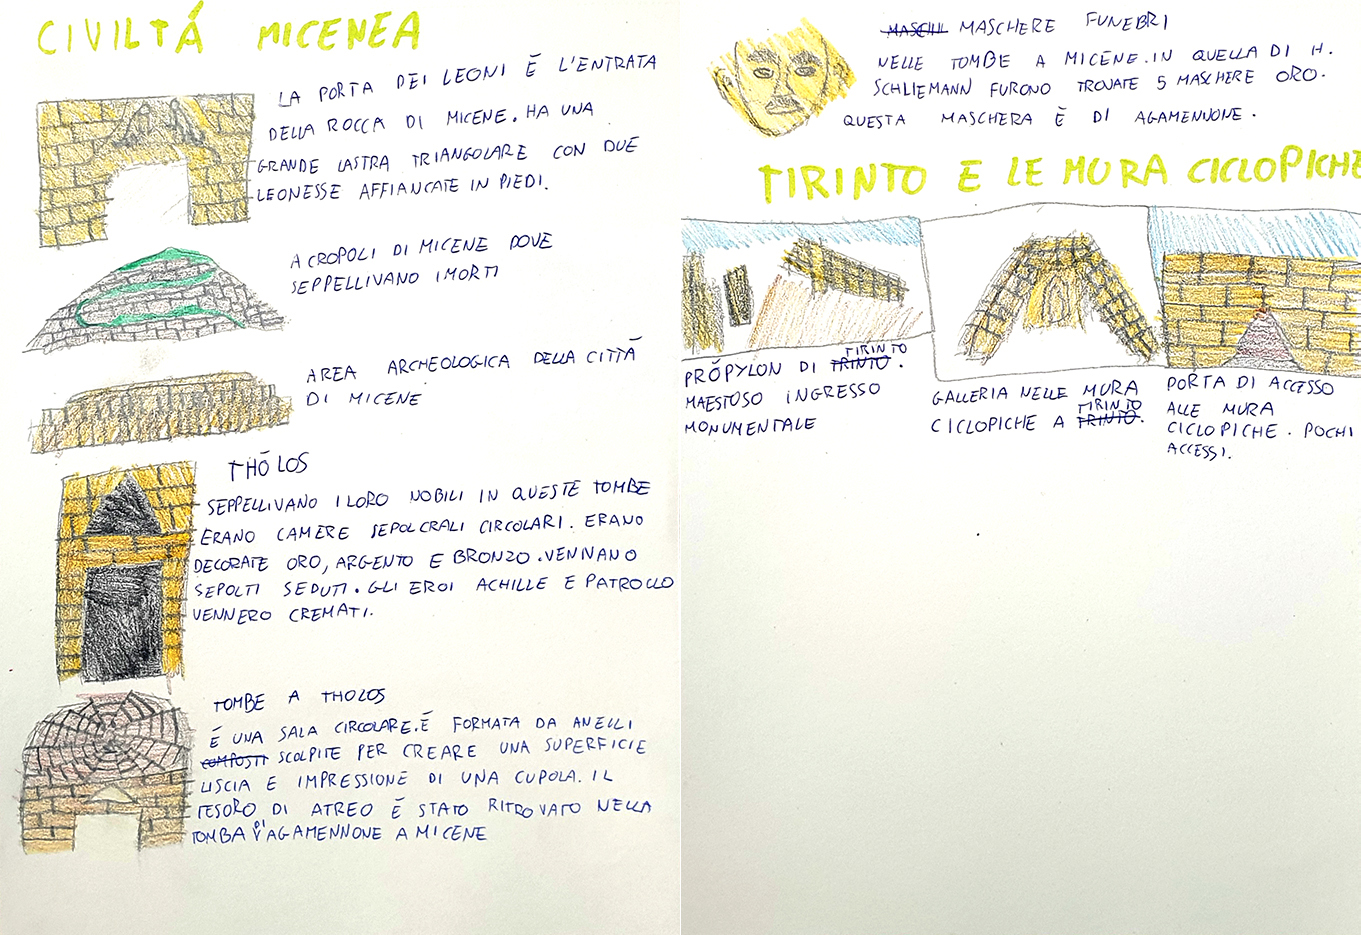 CIVILTÁ MICENEA
LA PORTA DEI LEONI É L'ENTRATA
DELLA ROCCA DI MICENE. HA UNA
GRANDE LASTRA TRIANGOLARE CON DUE
LEONESSE AFFIANCATE IN PIEDI.
ACROPOLI DI MICENE DOVE
SEPPELLIVANO I MORTI
AREA ARCHEOLOGICA DELLA CITTÁ
DI MICENE
THÓLOS
SEPPELLIVANO I LORO NOBILI IN QUESTE TOMBE
ERANO CAMERE SEPOLCRALI CIRCOLARI. ERANO
DECORATE ORO, ARGENTO E BRONZO. VENIVANO
SEPOLTI SEDUTI. GLI EROI ACHILLE E PATROCLO
VENNERO CREMATI.
TOMBE A THOLOS
É UNA SALA CIRCOLARE. É FORMATA DA ANELLI
COMPOSTI SCOLPITE PER CREARE UNA SUPERFICIE
LISCIA E IMPRESSIONE DI UNA CUPOLA. IL
TESORO DI ATREO É STATO RITROVATO NELLA
TOMBA DI AGAMENNONE A MICENE
MASCHI MASCHERE FUNEBRI
NELLE TOMBE A MICENE. IN QUELLA DI H.
SCHLIEMANN FURONO TROVATE 5 MASCHERE ORO.
QUESTA MASCHERA È DI AGAMENNONE.
TIRINTO E LE MURA CICLOPICHE
PRÓPYLON DI TRINTO TIRINTO.
MAESTOSO INGRESSO
MONUMENTALE
GALLERIA NELLE MURA
CICLOPICHE A TRINTO TIRINTO.
PORTA DI ACCESSO
ALLE MURA
CICLOPICHE. POCHI
ACCESSI.